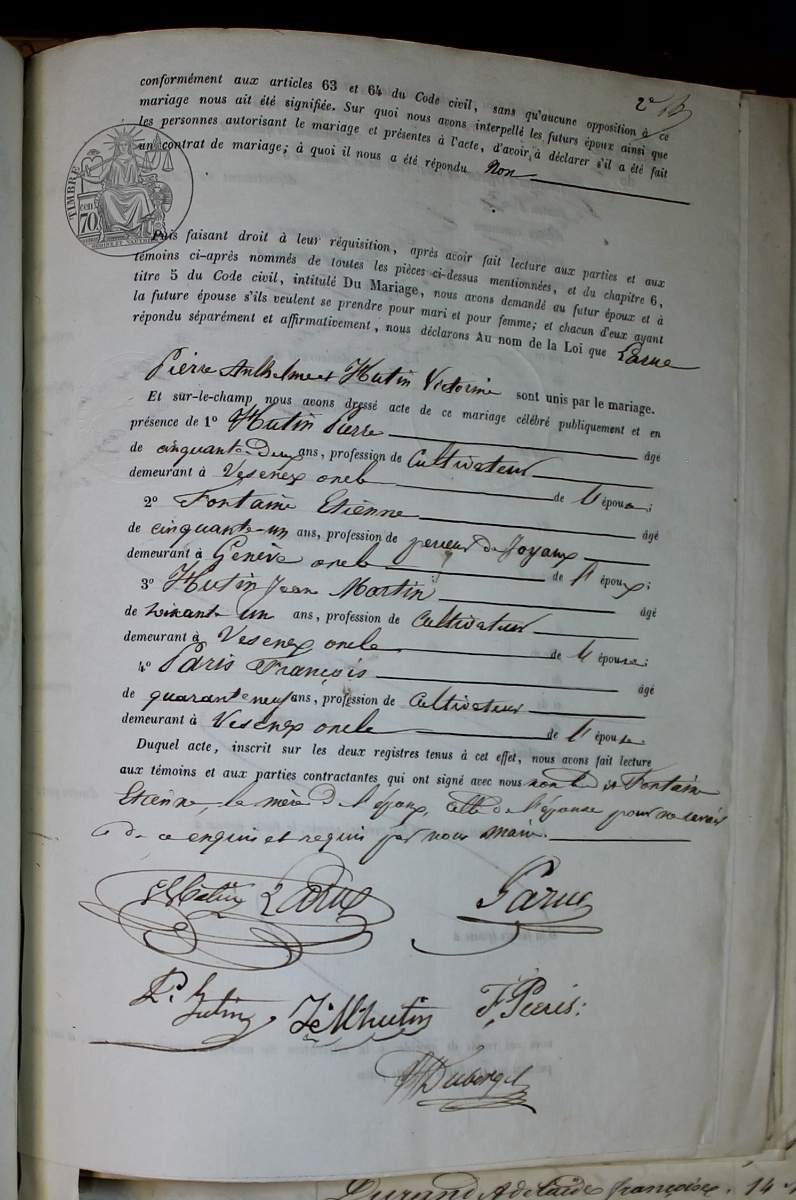 conformément aux articles 63 et 64 du Code civil, sans qu'aucune opposition à ce
mariage nous ait été signifiée. Sur quoi nous avons interpellé les futurs époux ainsi que
les personnes autorisant le mariage et présentes à l'acte, d'avoir à déclarer s'il a été fait
un contrat de mariage; à quoi il nous a été répondu Non
TIMBRE
cen
70
Puis faisant droit à leur réquisition, après avoir fait lecture aux parties et aux
témoins ci-après nommés de toutes les pièces ci-dessus mentionnées, et du chapitre 6,
titre 5 du Code civil, intitulé Du Mariage, nous avons demandé au futur époux et à
la future épouse s'ils veulent se prendre pour mari et pour femme; et chacun d'eux ayant
répondu séparément et affirmativement, nous déclarons Au nom de la Loi que Larue
Pierre Anthelme et Hutin Victorine sont unis par le mariage.
Et sur-le-champ nous avons dressé acte de ce mariage célébré publiquement et en
présence de 1° Hutin Pierre âgé
de cinquante-deux ans, profession de Cultivateur
demeurant à Vesenex oncle de l'épouse;
2° Fontaine Etienne âgé
de cinquante-un ans, profession de perceur de Joyaux
demeurant à Genève oncle de l'époux;
3° Hutin Jean Martin âgé
de soixante un ans, profession de Cultivateur
demeurant à Vesenex oncle de l'épouse;
4° Paris François âgé
de quarante neuf ans, profession de Cultivateur
demeurant à Vesenex oncle de l'épouse.
Duquel acte, inscrit sur les deux registres tenus à cet effet, nous avons fait lecture
aux témoins et aux parties contractantes qui ont signé avec nous non le dit Fontaine
Etienne, la mère de l'époux, celle de l'épouse pour ne savoir
de ce enquis et requis par nous maire.
Larue
P. Hutin J M hutin F. Paris
Duborgel
Durand Adelaide françoise. 14